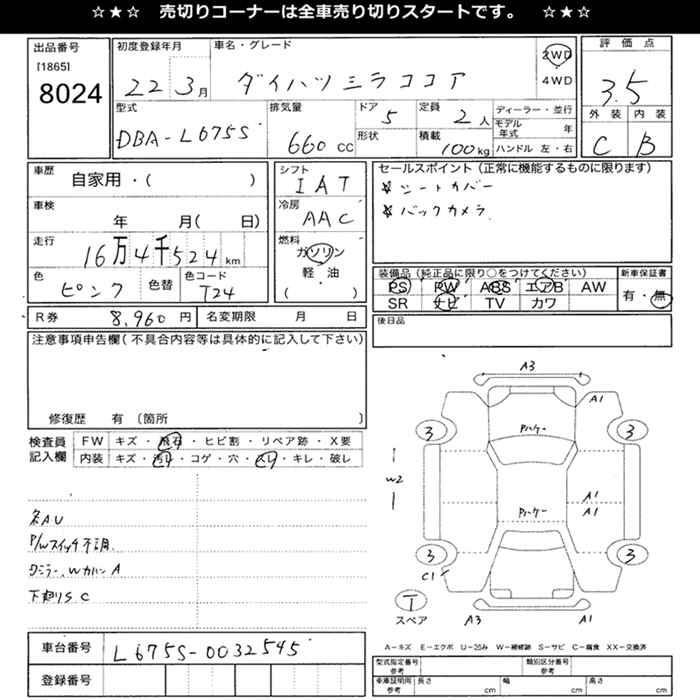 ☆★☆ 売切りコーナーは全車売り切りスタートです。 ☆★☆
出品番号
[1865]
8024
初度登録年月
22年3月
車名・グレード
ダイハツミラココア
2WD
4WD
評価点
3.5
外装 内装
C B
型式
DBA-L675S
排気量
660cc
ドア
5
形状
定員
2人
積載
100kg
ディーラー・並行
モデル年式 年
ハンドル 左・右
車歴
自家用・( )
車検
年 月( 日)
走行
16万4千524km
色
ピンク
色替
色コード
T24
シフト
IAT
冷房
AAC
燃料
ガソリン
軽・油
( )
セールスポイント(正常に機能するものに限ります)
☆シートカバー
☆バックカメラ
装備品(純正品に限り○をつけてください)
PS PW ABS エアB AW
SR ナビ TV カワ
新車保証書
有・無
R券 8,960円
名変期限 月 日
後日品
注意事項申告欄(不具合内容等は具体的に記入して下さい)
修復歴 有〔箇所 〕
検査員
記入欄
FW キズ・飛石・ヒビ割・リペア跡・X要
内装 キズ・汚れ・コゲ・穴・スレ・キレ・破レ
名AU
P/Wスイッチ不調
下廻りSC
A3
A1
3
3
パーケー
W2
パーケー
A1
A1
3
3
C1
T
スペア
A3
A1
車台番号 L675S-0032545
登録番号
A-キズ E-エクボ U-凹み W-補修跡 S-サビ C-腐食 XX-交換済
型式指定番号
参考
類別区分番号
参考
車庫証明用
参考
長さ cm 幅 cm 高さ cm